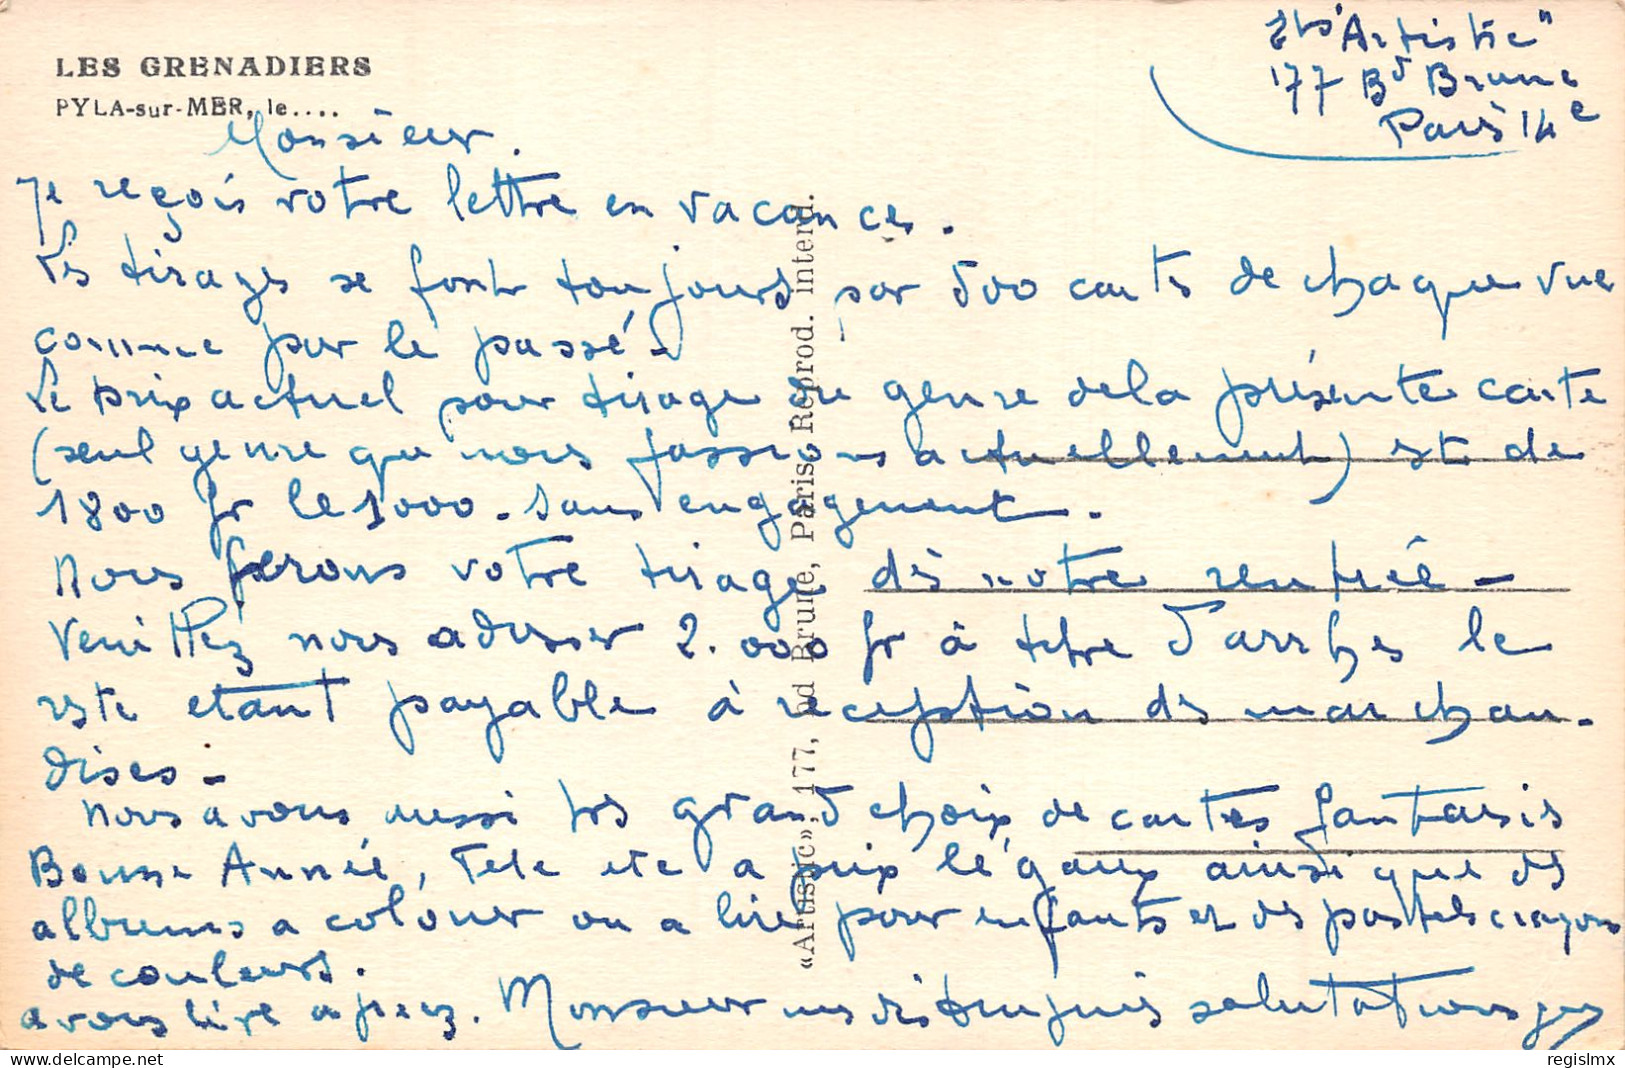 LES GRENADIERS
PYLA-sur-MER, le....
Ets "Artistic"
177 Bd Brune
Paris 14e
Monsieur.
Je reçois votre lettre en vacances.
Les tirages se font toujours par 500 cartes de chaque vue
comme par le passé -
Le prix actuel pour tirage genre de la présente carte
(seul genre que nous fassions actuellement) est de
1800 fr le 1000 - sans engagement.
Nous ferons votre tirage dès notre rentrée -
Veuillez nous adresser 2.000 fr à titre d'arrhes le
reste étant payable à réception des marchan-
dises -
Nous avons aussi très grand choix de cartes fantaisies
Bonne Année, Fete etc a prix légaux ainsi que des
albums a colorier ou a lire pour enfants et des pastels crayons
de couleurs.
a vous lire Monsieur mes salutations
«Artistic», 177, bd Brune, Paris. Reprod. interd.
regislmx